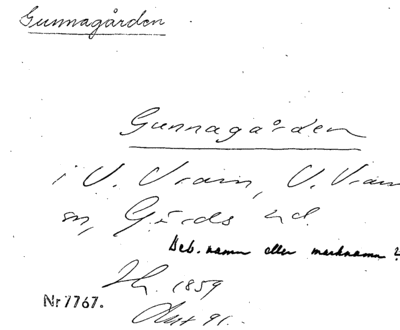 Gunnagården
Gunnagården
i V. Vram, V. Vram
sn, Gärds hd.
Beb.namn eller marknamn?
Jb. 1859
Nr 7767.